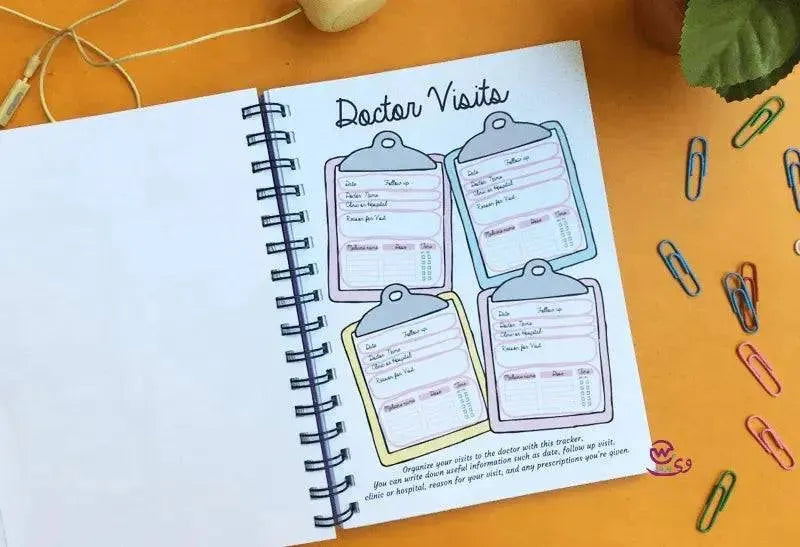 Doctor Visits
Date Follow up
Doctor Name
Clinic or Hospital
Reason for Visit
Medicine name Dose Time
Date Follow up
Doctor Name
Clinic or Hospital
Reason for Visit
Medicine name Dose Time
Date Follow up
Doctor Name
Clinic or Hospital
Reason for Visit
Medicine name Dose Time
Date Follow up
Doctor Name
Clinic or Hospital
Reason for Visit
Medicine name Dose Time
Organize your visits to the doctor with this tracker.
You can write down useful information such as date, follow up visit,
clinic or hospital, reason for your visit, and any prescriptions you're given.